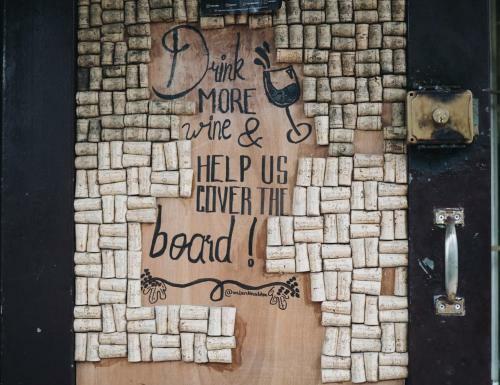 Drink
MORE
wine &
HELP US
COVER THE
board!